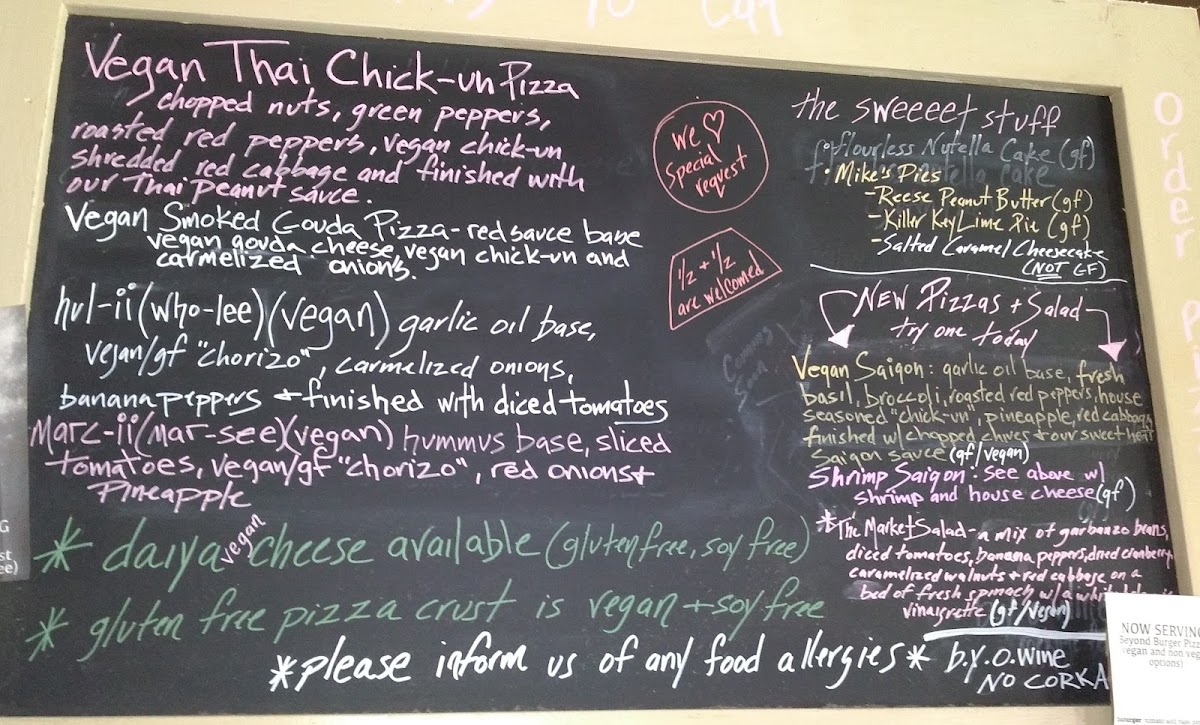 Vegan Thai Chick-un Pizza
chopped nuts, green peppers,
roasted red peppers, vegan chick-un
shredded red cabbage and finished with
our Thai Peanut sauce.
Vegan Smoked Gouda Pizza - red sauce base
vegan gouda cheese, vegan chick-un and
carmelized onions.
hul-ii (who-lee) (vegan) garlic oil base,
vegan/gf "chorizo", carmelized onions,
banana peppers + finished with diced tomatoes
Marc-ii (mar-see) (vegan) hummus base, sliced
tomatoes, vegan/gf "chorizo", red onions +
Pineapple
* daiya vegan cheese available (gluten free, soy free)
* gluten free pizza crust is vegan + soy free
*please inform us of any food allergies*
We ♡
Special
request
1/2 + 1/2
are welcomed
Coming
Soon
the sweeeet stuff
flourless Nutella Cake (gf)
• Mike's Pies
- Reese Peanut Butter (gf)
- Killer Key Lime Pie (gf)
- Salted Caramel Cheesecake
(NOT GF)
New Pizzas + Salad
try one today
Vegan Saigon: garlic oil base, fresh
basil, broccoli, roasted red peppers, house
seasoned "chick-un", pineapple, red cabbage
finished w/ chopped chives + our sweet heat
Saigon sauce (gf/vegan)
Shrimp Saigon: see above w/
shrimp and house cheese (gf)
*The Market Salad - a mix of garbanzo beans,
diced tomatoes, banana peppers, dried cranberry,
caramelized walnuts + red cabbage on a
bed of fresh spinach w/ a white
vinaigrette (gf/vegan)
b.y.o.wine
NO CORKA
Order
NOW SERVING
Beyond Burger Pizz
vegan and non veg
options)